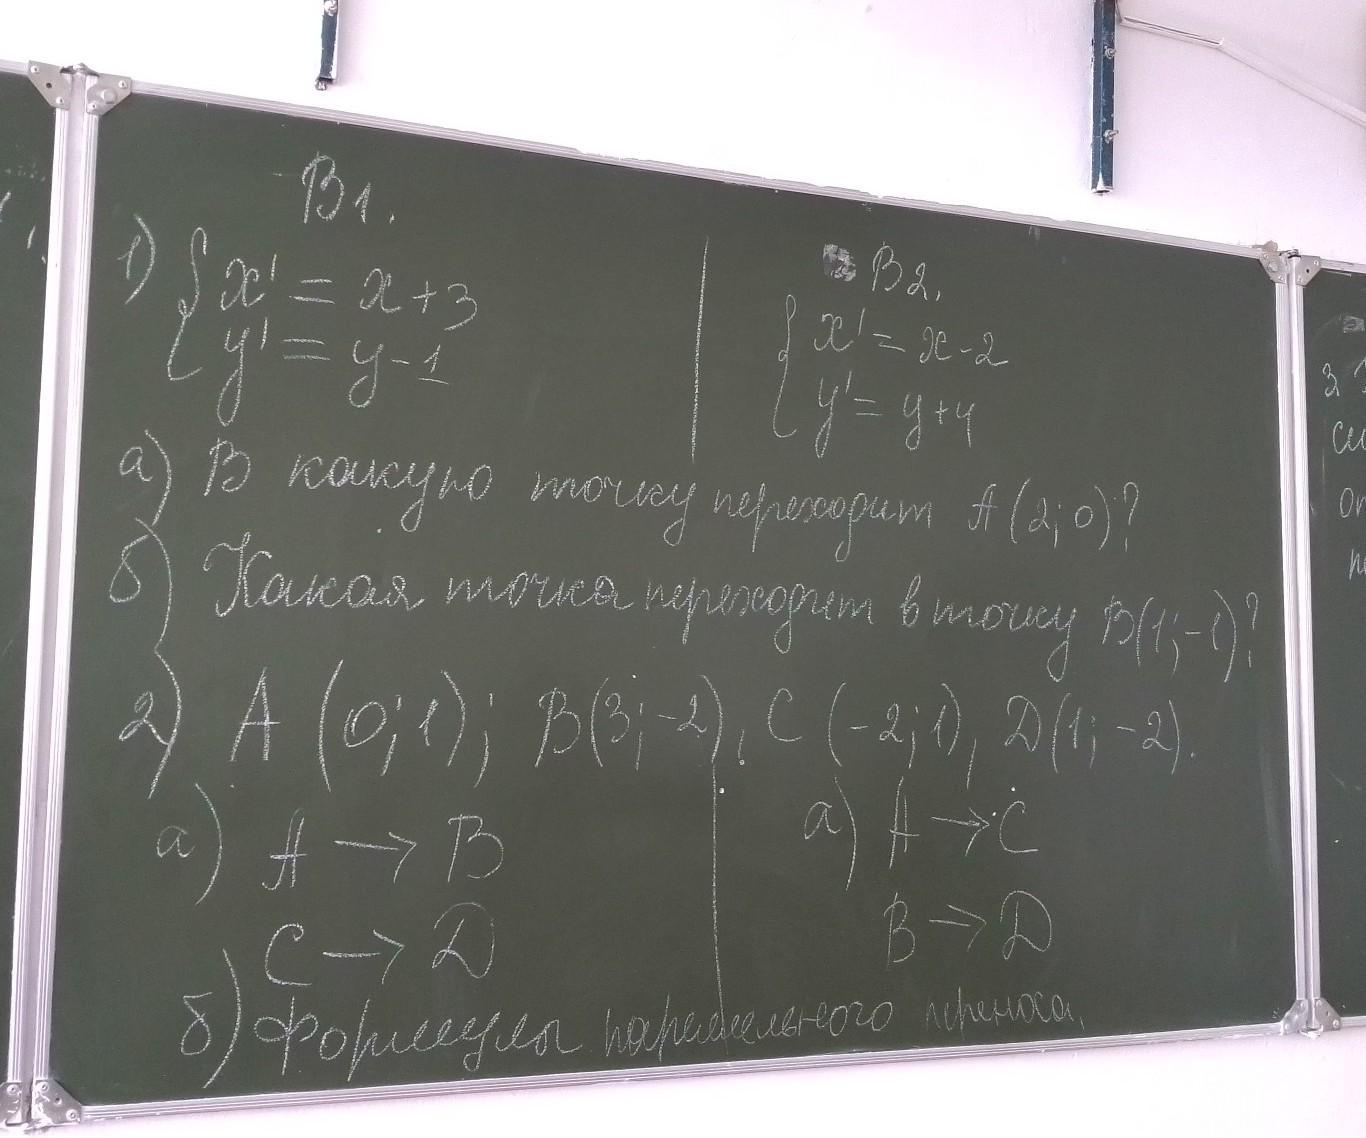 В1.
1) { x' = x+3
y' = y-1
В2.
{ x' = x-2
y' = y+4
а) В какую точку переходит А(2;0)?
б) Какая точка переходит в точку В(1;-1)?
2) А (0;1); В(3;-2), С (-2;1), D(1;-2).
а) А → В
С → D
а) А → С
В → D
б) Формулы параллельного переноса.